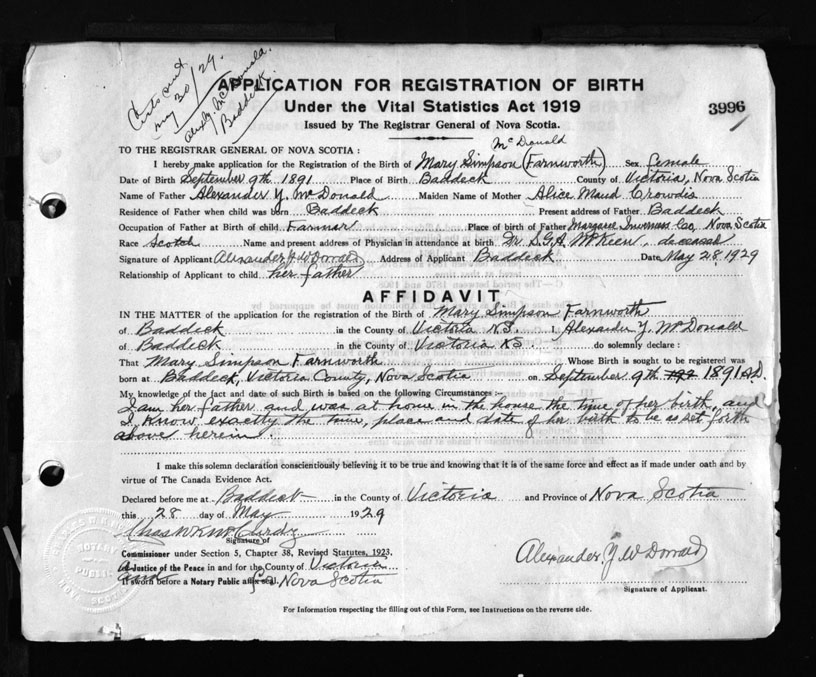 Certs sent
May 30/29.
Alex. Y. McDonald.
Baddeck.
APPLICATION FOR REGISTRATION OF BIRTH
Under the Vital Statistics Act 1919
3996
Issued by The Registrar General of Nova Scotia.
McDonald
TO THE REGISTRAR GENERAL OF NOVA SCOTIA :
I hereby make application for the Registration of the Birth of Mary Simpson (Farnworth) Sex female
Date of Birth September 9th 1891 Place of Birth Baddeck County of Victoria, Nova Scotia
Name of Father Alexander Y. McDonald Maiden Name of Mother Alice Maud Crowdis
Residence of Father when child was born Baddeck Present address of Father Baddeck
Occupation of Father at Birth of child Farmer Place of birth of Father Margaree Inverness Co., Nova Scotia
Race Scotch Name and present address of Physician in attendance at birth Dr. S.G.A. McKeen, deceased
Signature of Applicant Alexander Y McDonald Address of Applicant Baddeck Date May 28, 1929
Relationship of Applicant to child her father
AFFIDAVIT
IN THE MATTER of the application for the registration of the Birth of Mary Simpson Farnworth
of Baddeck in the County of Victoria N.S. I, Alexander Y. McDonald
of Baddeck in the County of Victoria N.S. do solemnly declare :
That Mary Simpson Farnworth Whose Birth is sought to be registered was
born at Baddeck, Victoria County, Nova Scotia on September 9th 1891 A.D.
My knowledge of the fact and date of such Birth is based on the following Circumstances :—
I am her father and was at home in the house the time of her birth, and
I know exactly the time, place and date of her birth to be as set forth
above herein.
I make this solemn declaration conscientiously believing it to be true and knowing that it is of the same force and effect as if made under oath and by
virtue of The Canada Evidence Act.
Declared before me at Baddeck in the County of Victoria and Province of Nova Scotia
this 28 day of May 1929
Chas W K McCurdy
Signature of
Commissioner under Section 5, Chapter 38, Revised Statutes, 1923.
A Justice of the Peace in and for the County of Victoria
If sworn before a Notary Public affix seal. Nova Scotia
Alexander Y McDonald
Signature of Applicant.
For Information respecting the filling out of this Form, see Instructions on the reverse side.